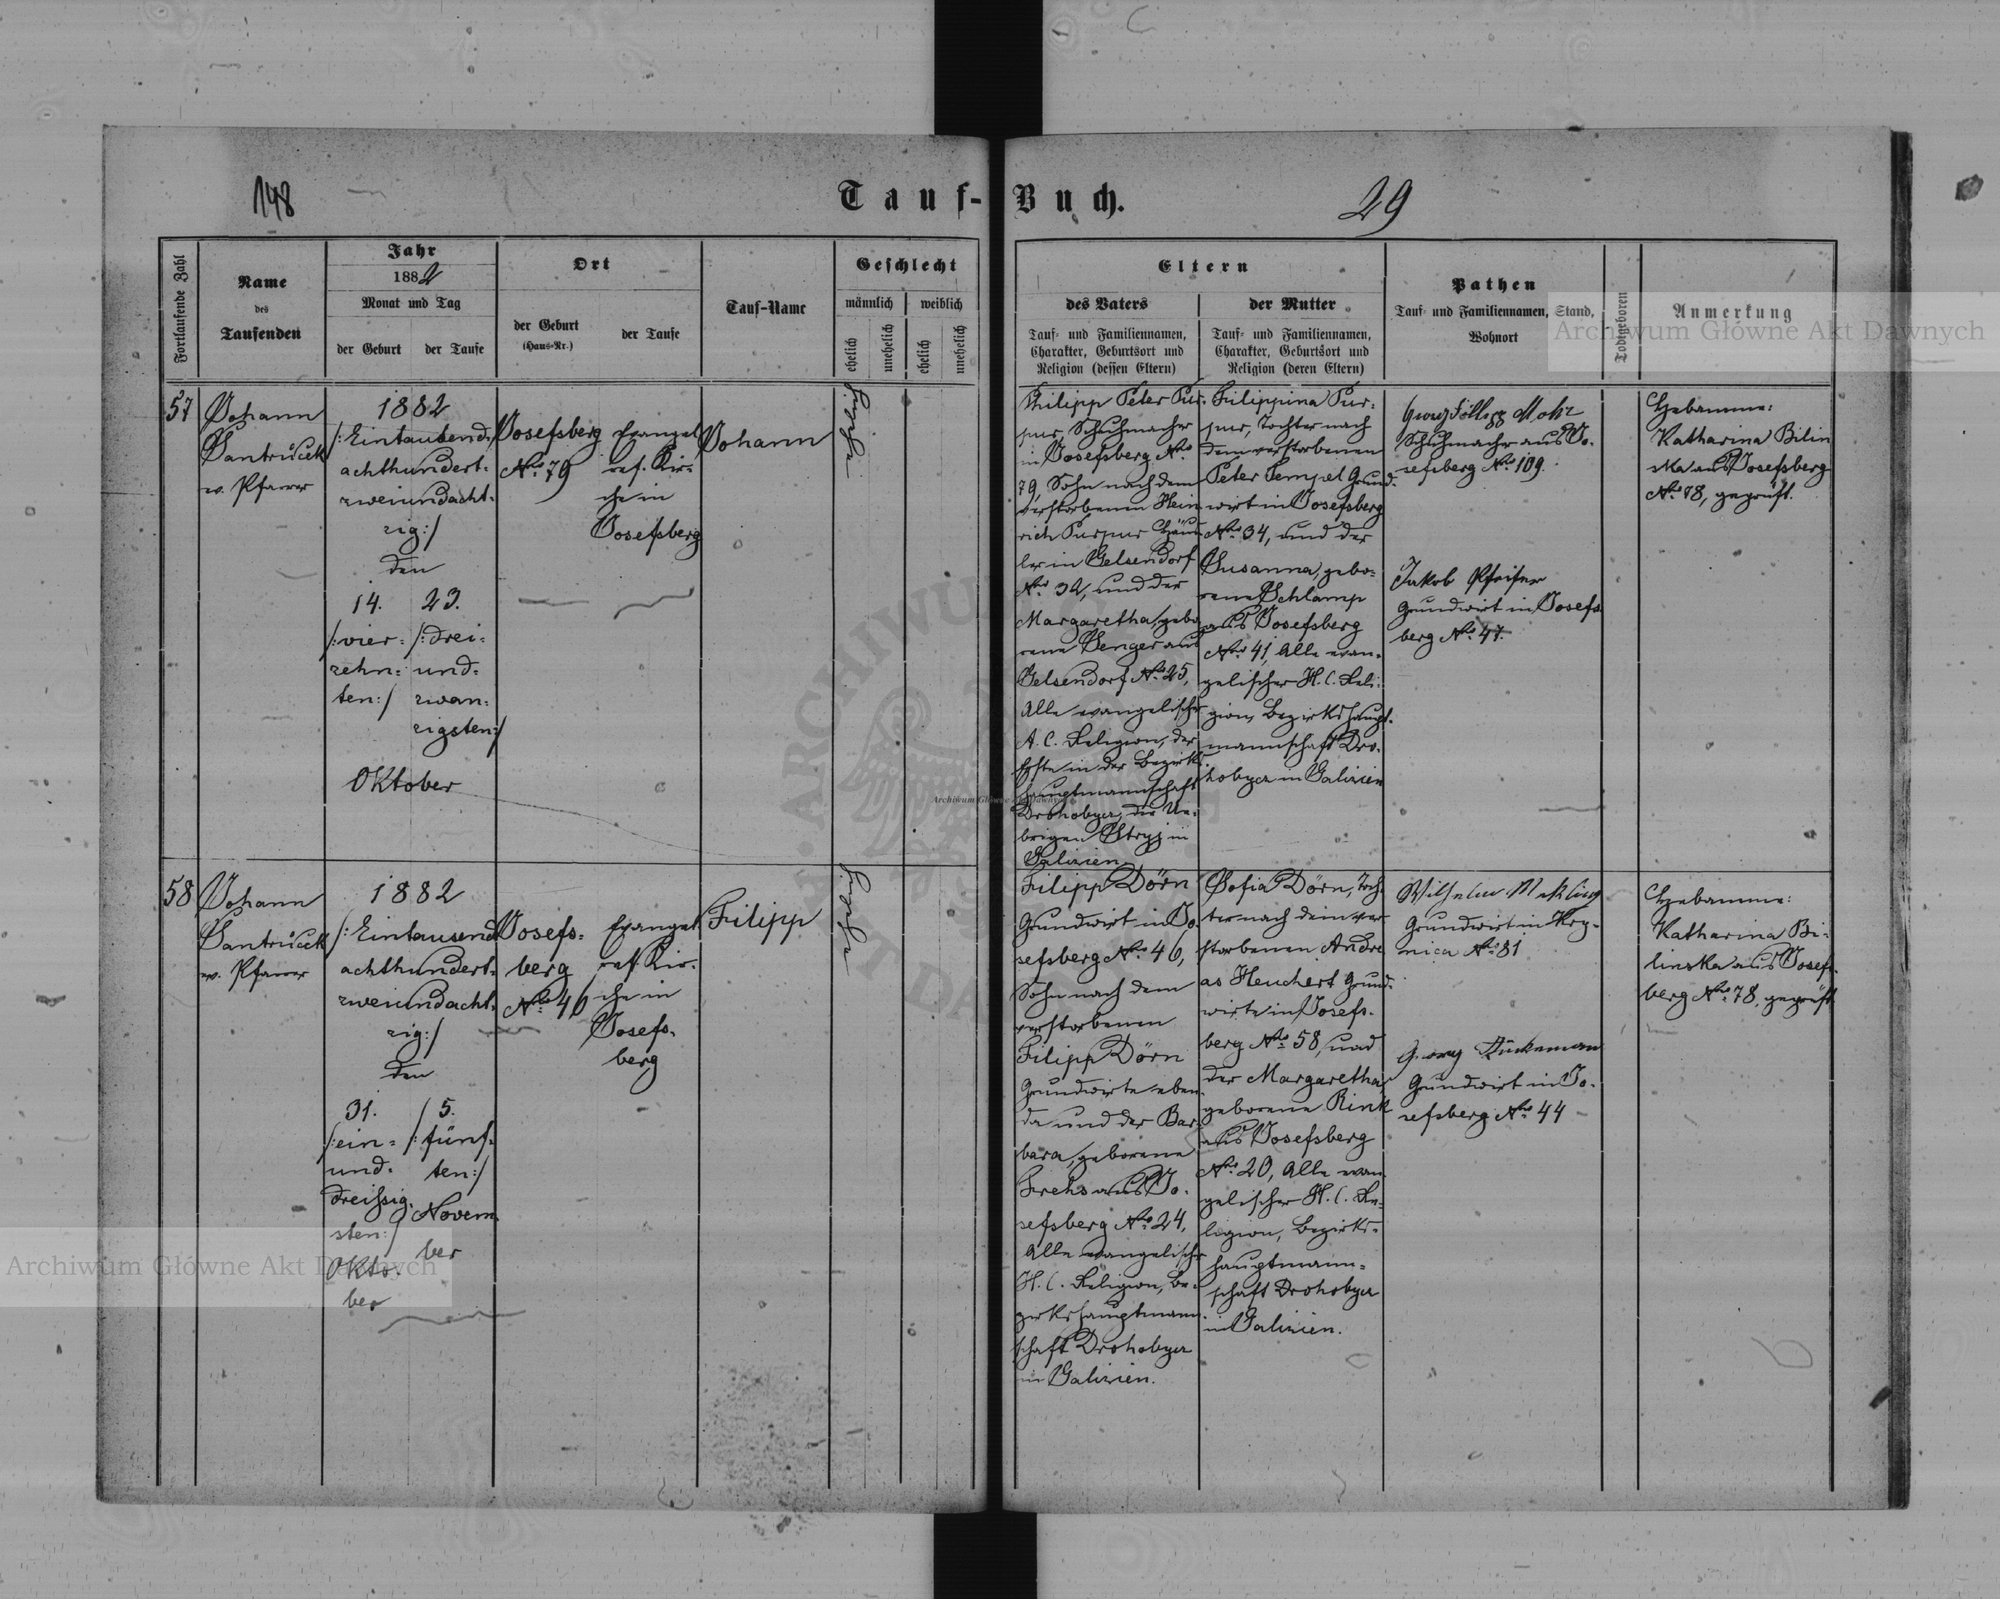 148
Tauf-Buch.
29
Fortlaufende Zahl
Name
des
Taufenden
Jahr
1882
Monat und Tag
der Geburt
der Taufe
Ort
der Geburt
(Haus-Nr.)
der Taufe
Tauf-Name
Geschlecht
männlich
weiblich
ehelich
unehelich
ehelich
unehelich
Eltern
des Vaters
Tauf- und Familiennamen,
Charakter, Geburtsort und
Religion (dessen Eltern)
der Mutter
Tauf- und Familiennamen,
Charakter, Geburtsort und
Religion (deren Eltern)
Pathen
Tauf- und Familiennamen, Stand,
Wohnort
Todtgeboren
Anmerkung
57
Johann
Santrůček
ev. Pfarrer
1882
/: Eintausend
achthundert-
zweiundacht-
zig :/
den
14.
/: vier-
zehn-
ten :/
23.
/: drei-
und-
zwan-
zigsten :/
Oktober
Josefsberg
Nro 79
Evangel
ref. Kir-
che in
Josefsberg
Johann
Philipp Peter Pur-
pur, Schuhmacher
in Josefsberg Nro
79, Sohn nach dem
verstorbenen Hein
rich Purpur Häus
ler in Gelsendorf
Nro 32, und der
Margaretha, gebo
rene Senger aus
Gelsendorf Nro 25,
Alle evangelischer
A. C. Religion, der
Erste in der Bezirks
hauptmannschaft
Drohobycz, die Ue-
brigen Stryj in
Galizien
Filippina Pur-
pur, Tochter nach
dem verstorbenen
Peter Tempel Grund-
wirt in Josefsberg
Nro 34, und der
Susanna, gebo-
rene Schlamp
aus Josefsberg
Nro 41, Alle evan-
gelischer H. C. Reli-
gion, Bezirkshaupt-
mannschaft Dro-
hobycz in Galizien
Mohr
Schuhmacher aus Jo-
sefsberg Nro 109.
Jakob Pfeifer
Grundwirt in Josefs
berg Nro 47.
Hebamme:
Katharina Bilin
ska aus Josefsberg
Nro 78, geprüft.
58
Johann
Santrůček
ev. Pfarrer
1882
/: Eintausend
achthundert-
zweiundacht-
zig :/
den
31.
/: ein-
und-
dreissig-
sten :/
Okto-
ber
5.
/: fünf-
ten :/
Novem-
ber
Josefs-
berg
Nro 46
Evangel
ref. Kir-
che in
Josefs-
berg
Filipp
Filipp Dörn
Grundwirt in Jo-
sefsberg Nro 46,
Sohn nach dem
verstorbenen
Filipp Dörn
Grundwirte eben-
da und der Bar-
bara, geborene
Frehs aus Jo-
sefsberg Nro 24,
Alle evangelischer
H. C. Religion, Be-
zirkshauptmann-
schaft Drohobycz
in Galizien.
Sofia Dörn, Toch-
ter nach dem ver
storbenen Andre
as Heuchert Grund-
wirte in Josefs-
berg Nro 58, und
der Margaretha
geborene Rink
aus Josefsberg
Nro 20, Alle evan
gelischer H. C. Re-
ligion, Bezirks-
hauptmann-
schaft Drohobycz
in Galizien.
Wilhelm
Grundwirt in Kry-
nica Nro 81
Georg
Grundwirt in Jo-
sefsberg Nro 44
Hebamme:
Katharina Bi-
linska aus Josefs-
berg Nro 78, geprüft
Archiwum Główne Akt Dawnych
Archiwum Główne Akt Dawnych
Archiwum Główne Akt Dawnych